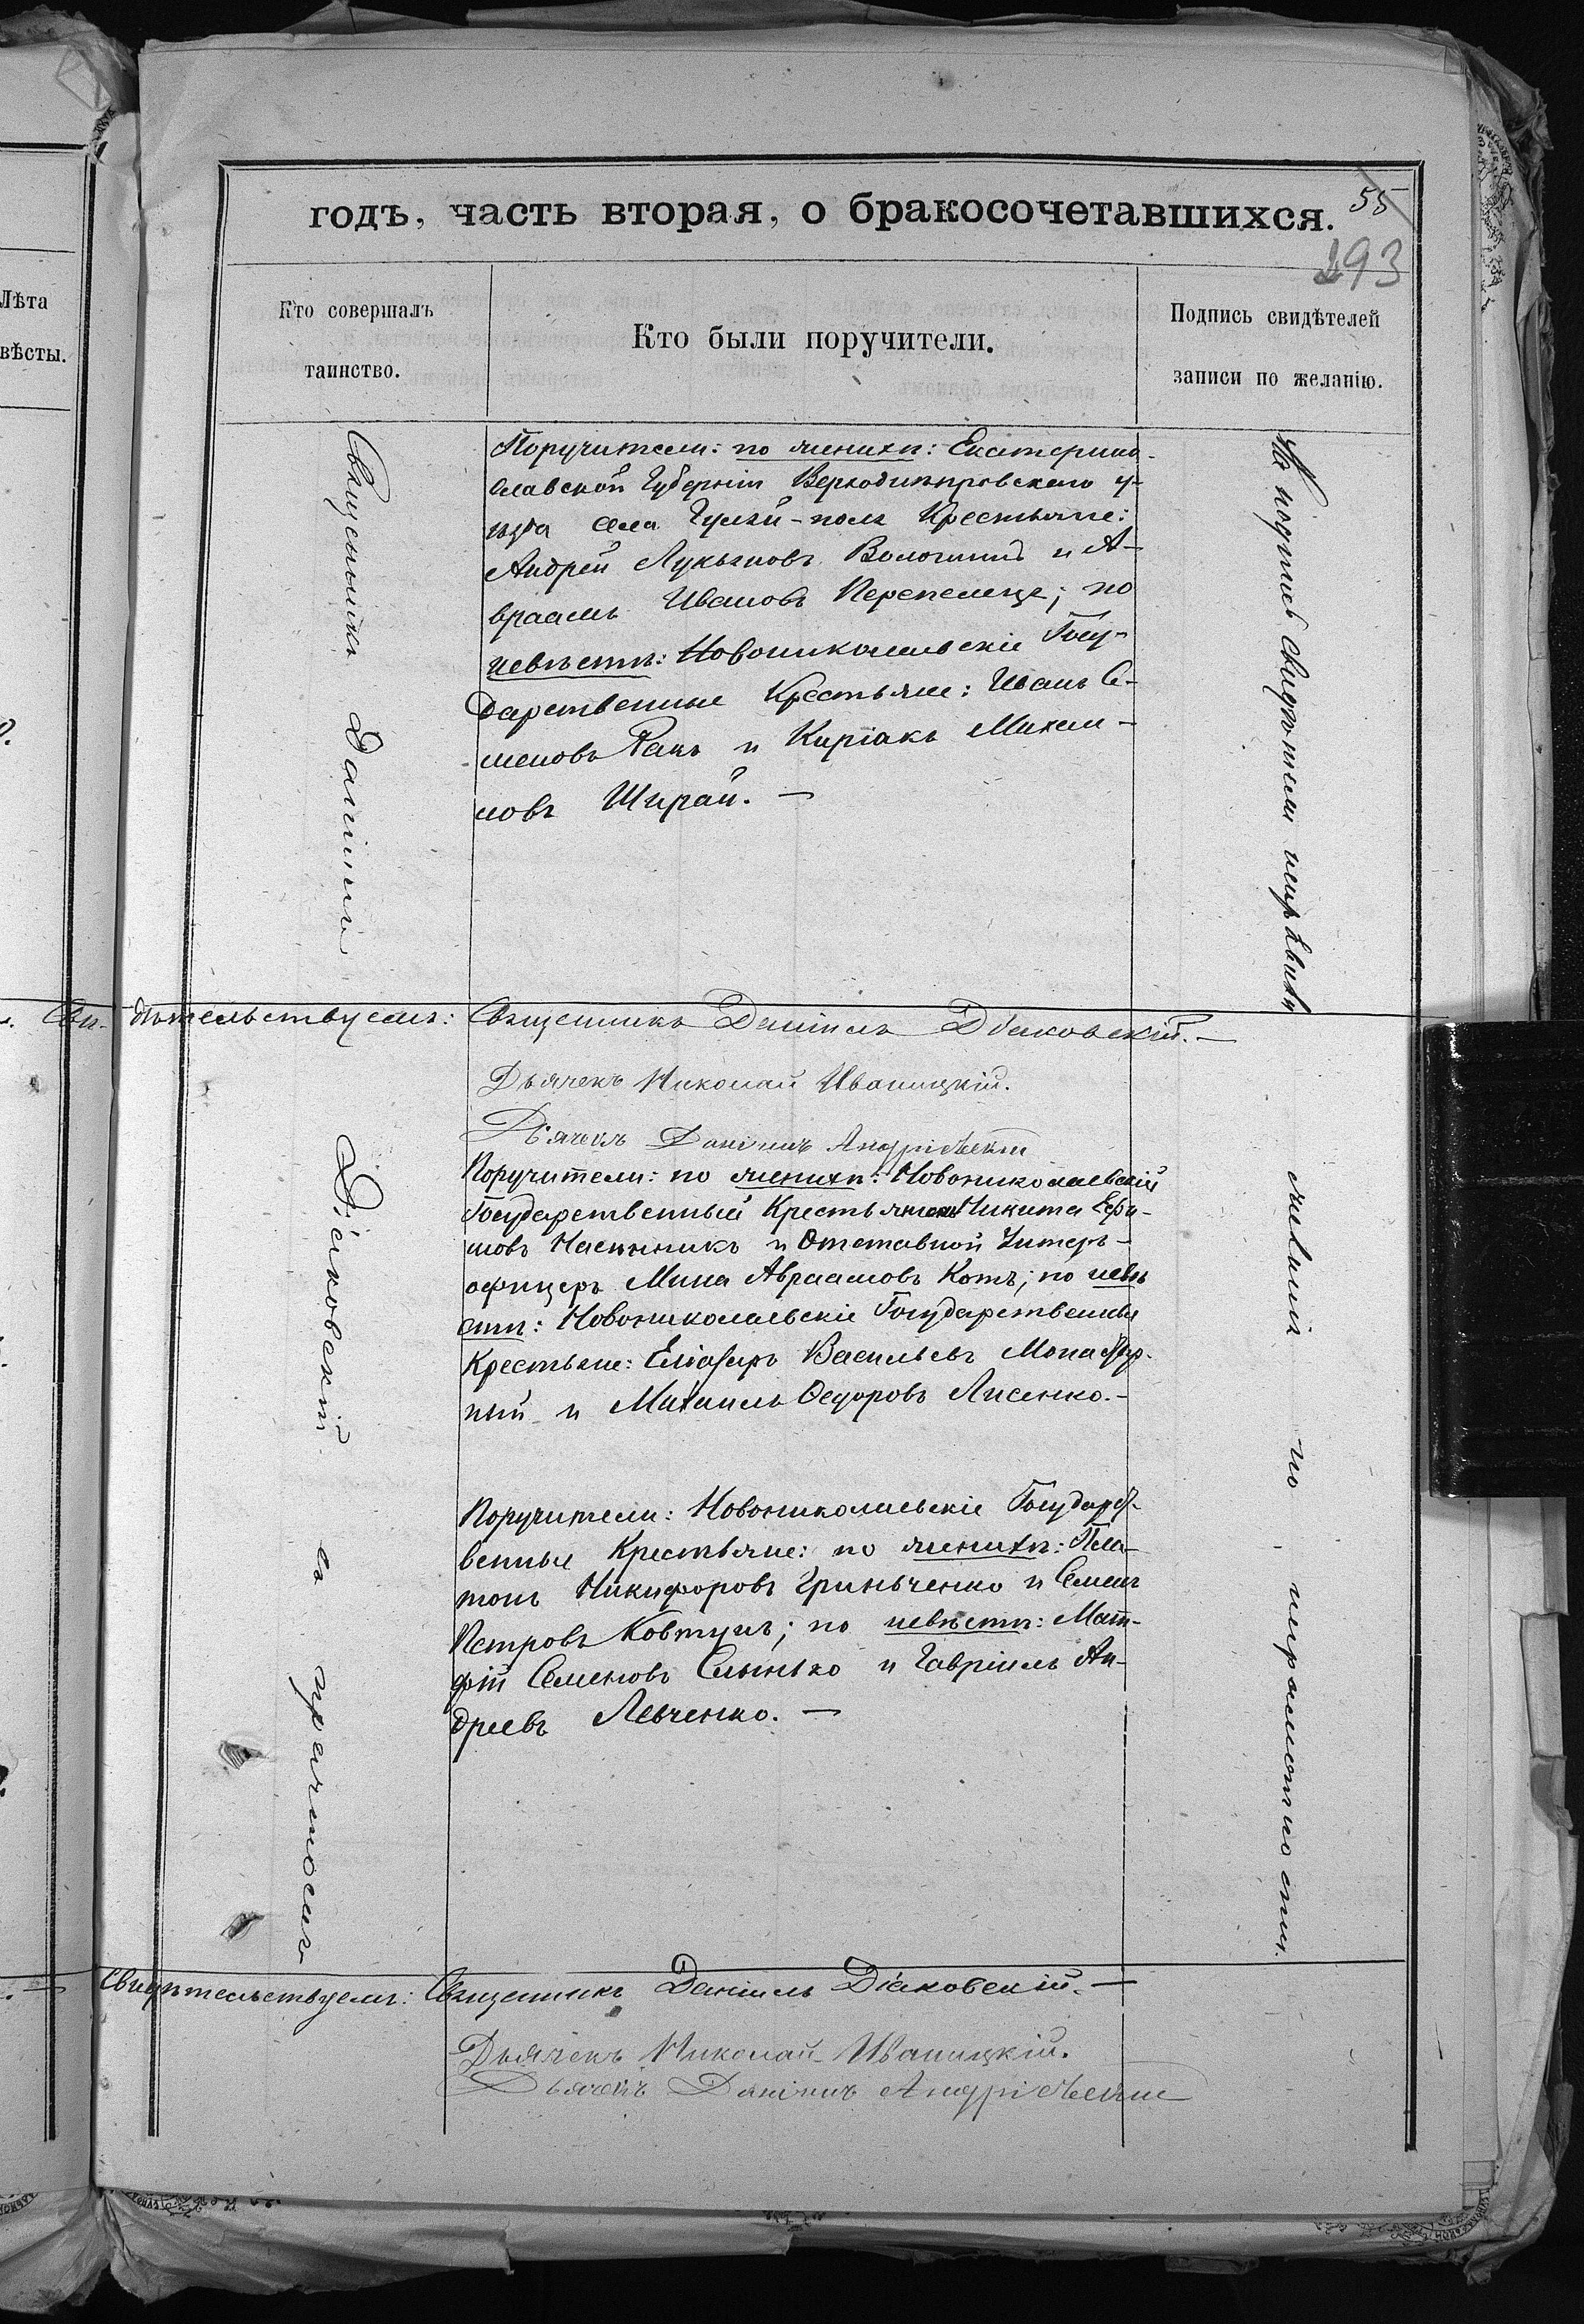 годъ, часть вторая, о бракосочетавшихся.
55
293
Лѣта
вѣсты.
Кто совершалъ
таинство.
Кто были поручители.
Подпись свидѣтелей
записи по желанію.
Священникъ Даніилъ
Поручители: по женихѣ: Екатерино-
славской Губерніи Верходнѣпровскаго у-
ѣзда села Гуляй-поля Крестьяне:
Андрей Лукьяновъ и А-
враамъ Ивановъ Перепелица; по
невѣстѣ: Новониколаевскіе Госу-
дарственные Крестьяне: Иванъ Се-
меновъ Ракъ и Киріакъ Михаи-
ловъ Ширай. —
На подпись свидѣтели неизъявили
Сви- дѣтельствуемъ: Священникъ Даніилъ Діаковскій. —
Дьячекъ Николай Иваницкій.
Дьячекъ Даніилъ Андріевскій
Поручители: по женихѣ: Новониколаевскій
Государственный Крестьянинъ Никита Ефи-
мовъ и Отставной Унтеръ-
офицеръ Мина Авраамовъ Котъ; по невѣ
стѣ: Новониколаевскіе Государственные
Крестьяне: Еліазаръ Васильевъ Монастыр-
ный и Михаилъ Ѳедоровъ Лисенко. —
Діаковскій съ причтомъ
желанія по неграмотности.
Поручители: Новониколаевскіе Государст-
венные Крестьяне: по женихѣ: Пла-
тонъ Никифоровъ Гриньченко и Семенъ
Петровъ Ковтунъ; по невѣстѣ: Мат-
фій Семеновъ Слынько и Гавріилъ Ан-
дреевъ Левченко. —
Свидѣтельствуемъ: Священникъ Даніилъ Діаковскій. —
Дьячекъ Николай Иваницкій.
Дьячекъ Даніилъ Андріевскій